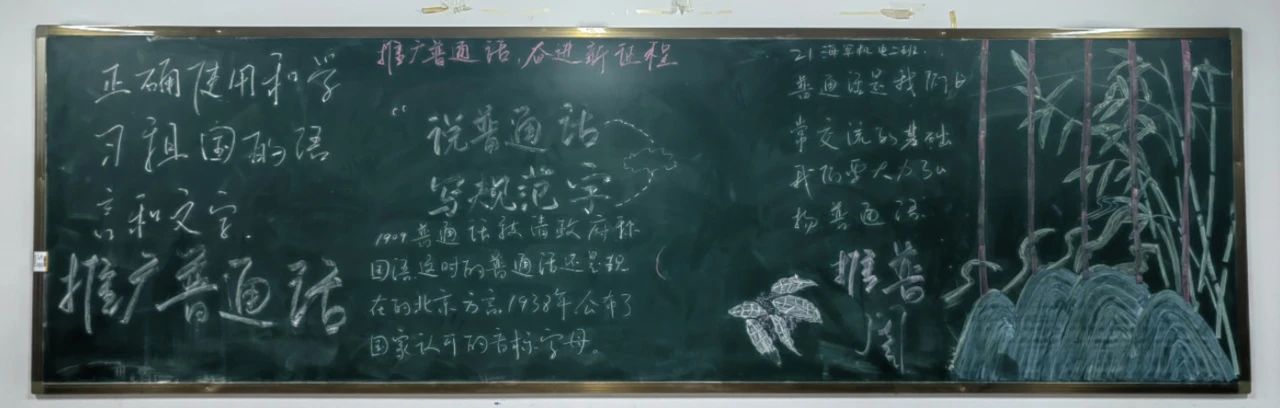 正确使用和学
习祖国的语
言和文字.
推广普通话
推广普通话,奋进新征程
“说普通话
写规范字
1909普通话被清政府称
国语这时的普通话还是现
在的北京方言1938年公布了
国家认可的音标字母。
21海军机电二班.
普通话是我们日
常交流的基础
我们要大力弘
扬普通话.
推普
周